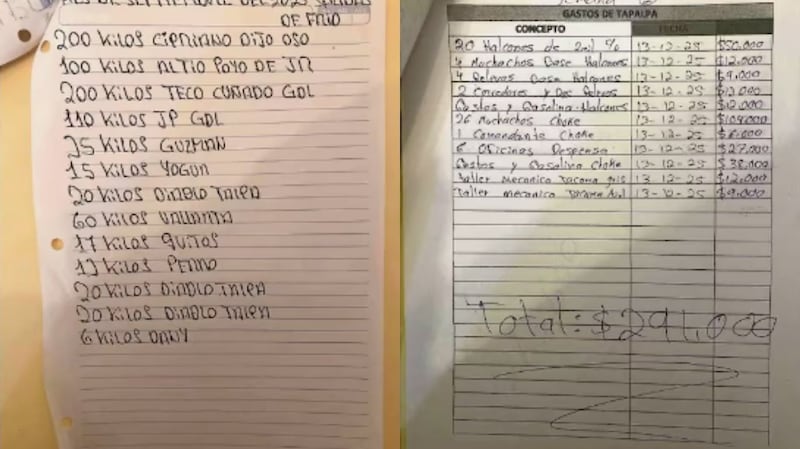 MES DE SEPTIEMBRE DEL 2025 SALIDAS
DE FRIO
200 KILOS CIPRIANO DIJO OSO
100 KILOS ALTIO POYO DE JR
200 KILOS TECO CUÑADO GDL
110 KILOS JP GDL
25 KILOS GUZMAN
15 KILOS YOGUR
20 KILOS DIABLO TALPA
60 KILOS VALLARTA
17 KILOS QUITOS
13 KILOS PERRO
20 KILOS DIABLO TALPA
20 KILOS DIABLO TALPA
6 KILOS DANY
GASTOS DE TAPALPA
CONCEPTO FECHA
20 Halcones de 2mil % 13-12-25 $50.000
4 Muchachos Base Halcones 13-12-25 $12.000
4 Relevos Base Halcones 13-12-25 $9.000
2 Corredores y Dos Relevos 13-12-25
Gastos y Gasolina Halcones 13-12-25 $12.000
26 Muchachos Choke 13-12-25 $104.000
1 Comandante Choke 13-12-25
6 Oficinas Despensa 13-12-25 $27.000
Gastos y Gasolina Choke 13-12-25 $38.000
Taller mecanico Tacoma gris 13-12-25 $12.000
Taller mecanico Tacoma Azul 13-12-25 $9.000
Total: $291,000